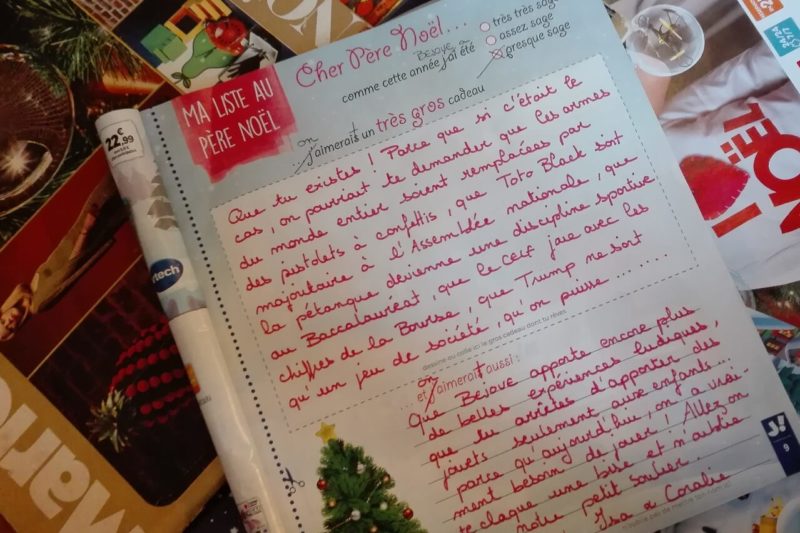 MA LISTE AU
PÈRE NOËL
Cher Père Noël...
comme cette année j'ai été
BEJOVE a
très très sage
assez sage
presque sage
on
j'aimerait un très gros cadeau
Que tu existes ! Parce que si c'était le
cas, on pourrait te demander que les armes
du monde entier soient remplacées par
des pistolets à confettis, que Toto Black soit
majoritaire à l'Assemblée nationale, que
la pétanque devienne une discipline sportive
au Baccalauréat, que le Celf joue avec les
chiffres de la Bourse, que Trump ne soit
qu'un jeu de société, qu'on puisse ........
dessine ou colle ici le gros cadeau dont tu rêves
on
... et j'aimerait aussi :
Que Bejove apporte encore plus
de belles expériences ludiques,
que tu arrêtes d'apporter des
jouets seulement aux enfants...
parce qu'aujourd'hui, on a vrai-
ment besoin de jouer ! Allez on
te claque une bise et n'oublie
notre petit soulier.
Isa & Coralie
22€,99
tech
J!
9
NOËL
24/24
7/7
Mario